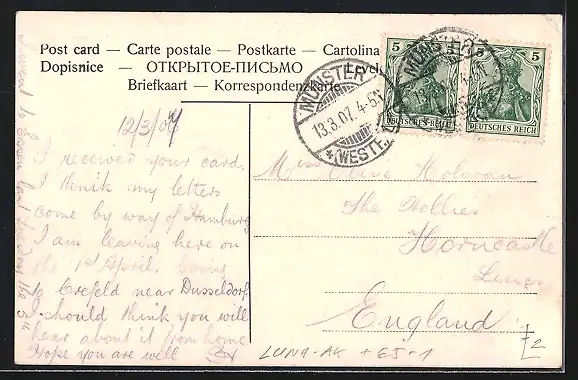 Post card — Carte postale — Postkarte — Cartolina
Dopisnice — ОТКРЫТОЕ-ПИСЬМО
Briefkaart — Korrespondenzkarte
5
5
DEUTSCHES REICH
DEUTSCHES REICH
MÜNSTER
13.3.07. 4-5N
*(WESTF.)
MÜNSTER
12/3/07
I received your card.
I think my letters
come by way of Hamburg
I am leaving here on
the 1st April. Going
to Crefeld near Dusseldorf
I should think you will
hear about it from home
Hope you are well
Miss Olive Holoran
The Hollies
Horncastle
England
LUNA-AK + 65-1
2